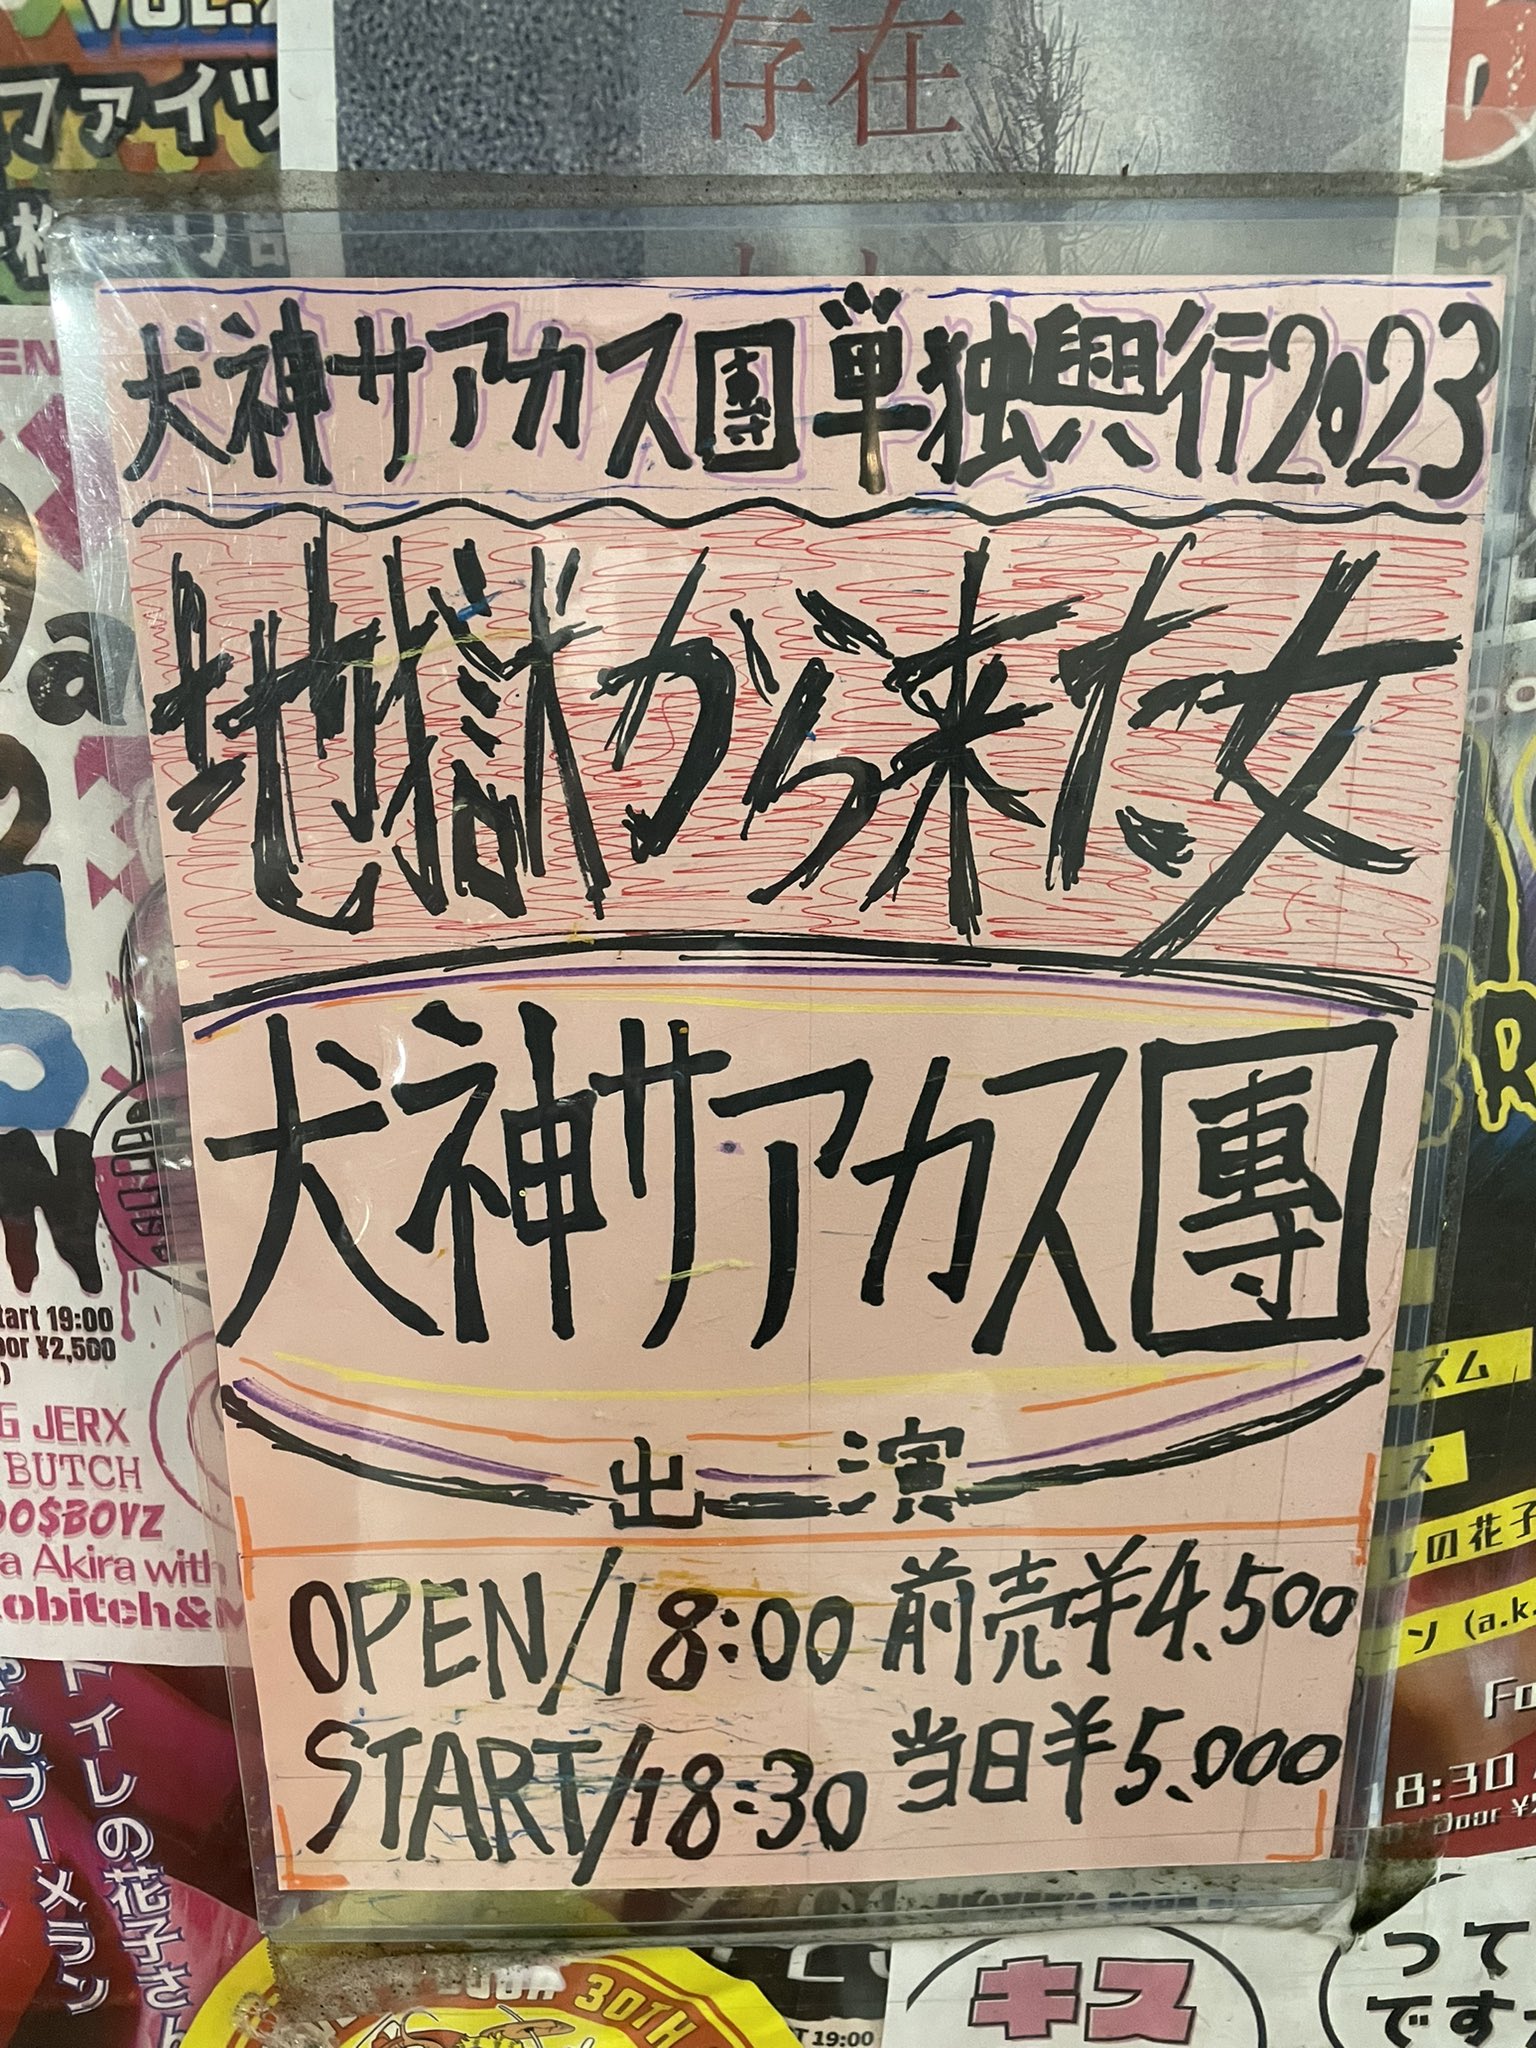 ファイツ
存在
犬神サアカス團単独興行2023
地獄から来た女
犬神サアカス團
出演
OPEN/18:00 前売¥4,500
START/18:30 当日¥5,000
19:00
¥2,500
JERX
BUTCH
Akira with
ズム
の花子
(a.k.
8:30
トイレの花子さん
ブーメラン
30TH
19:00
キス
って
です